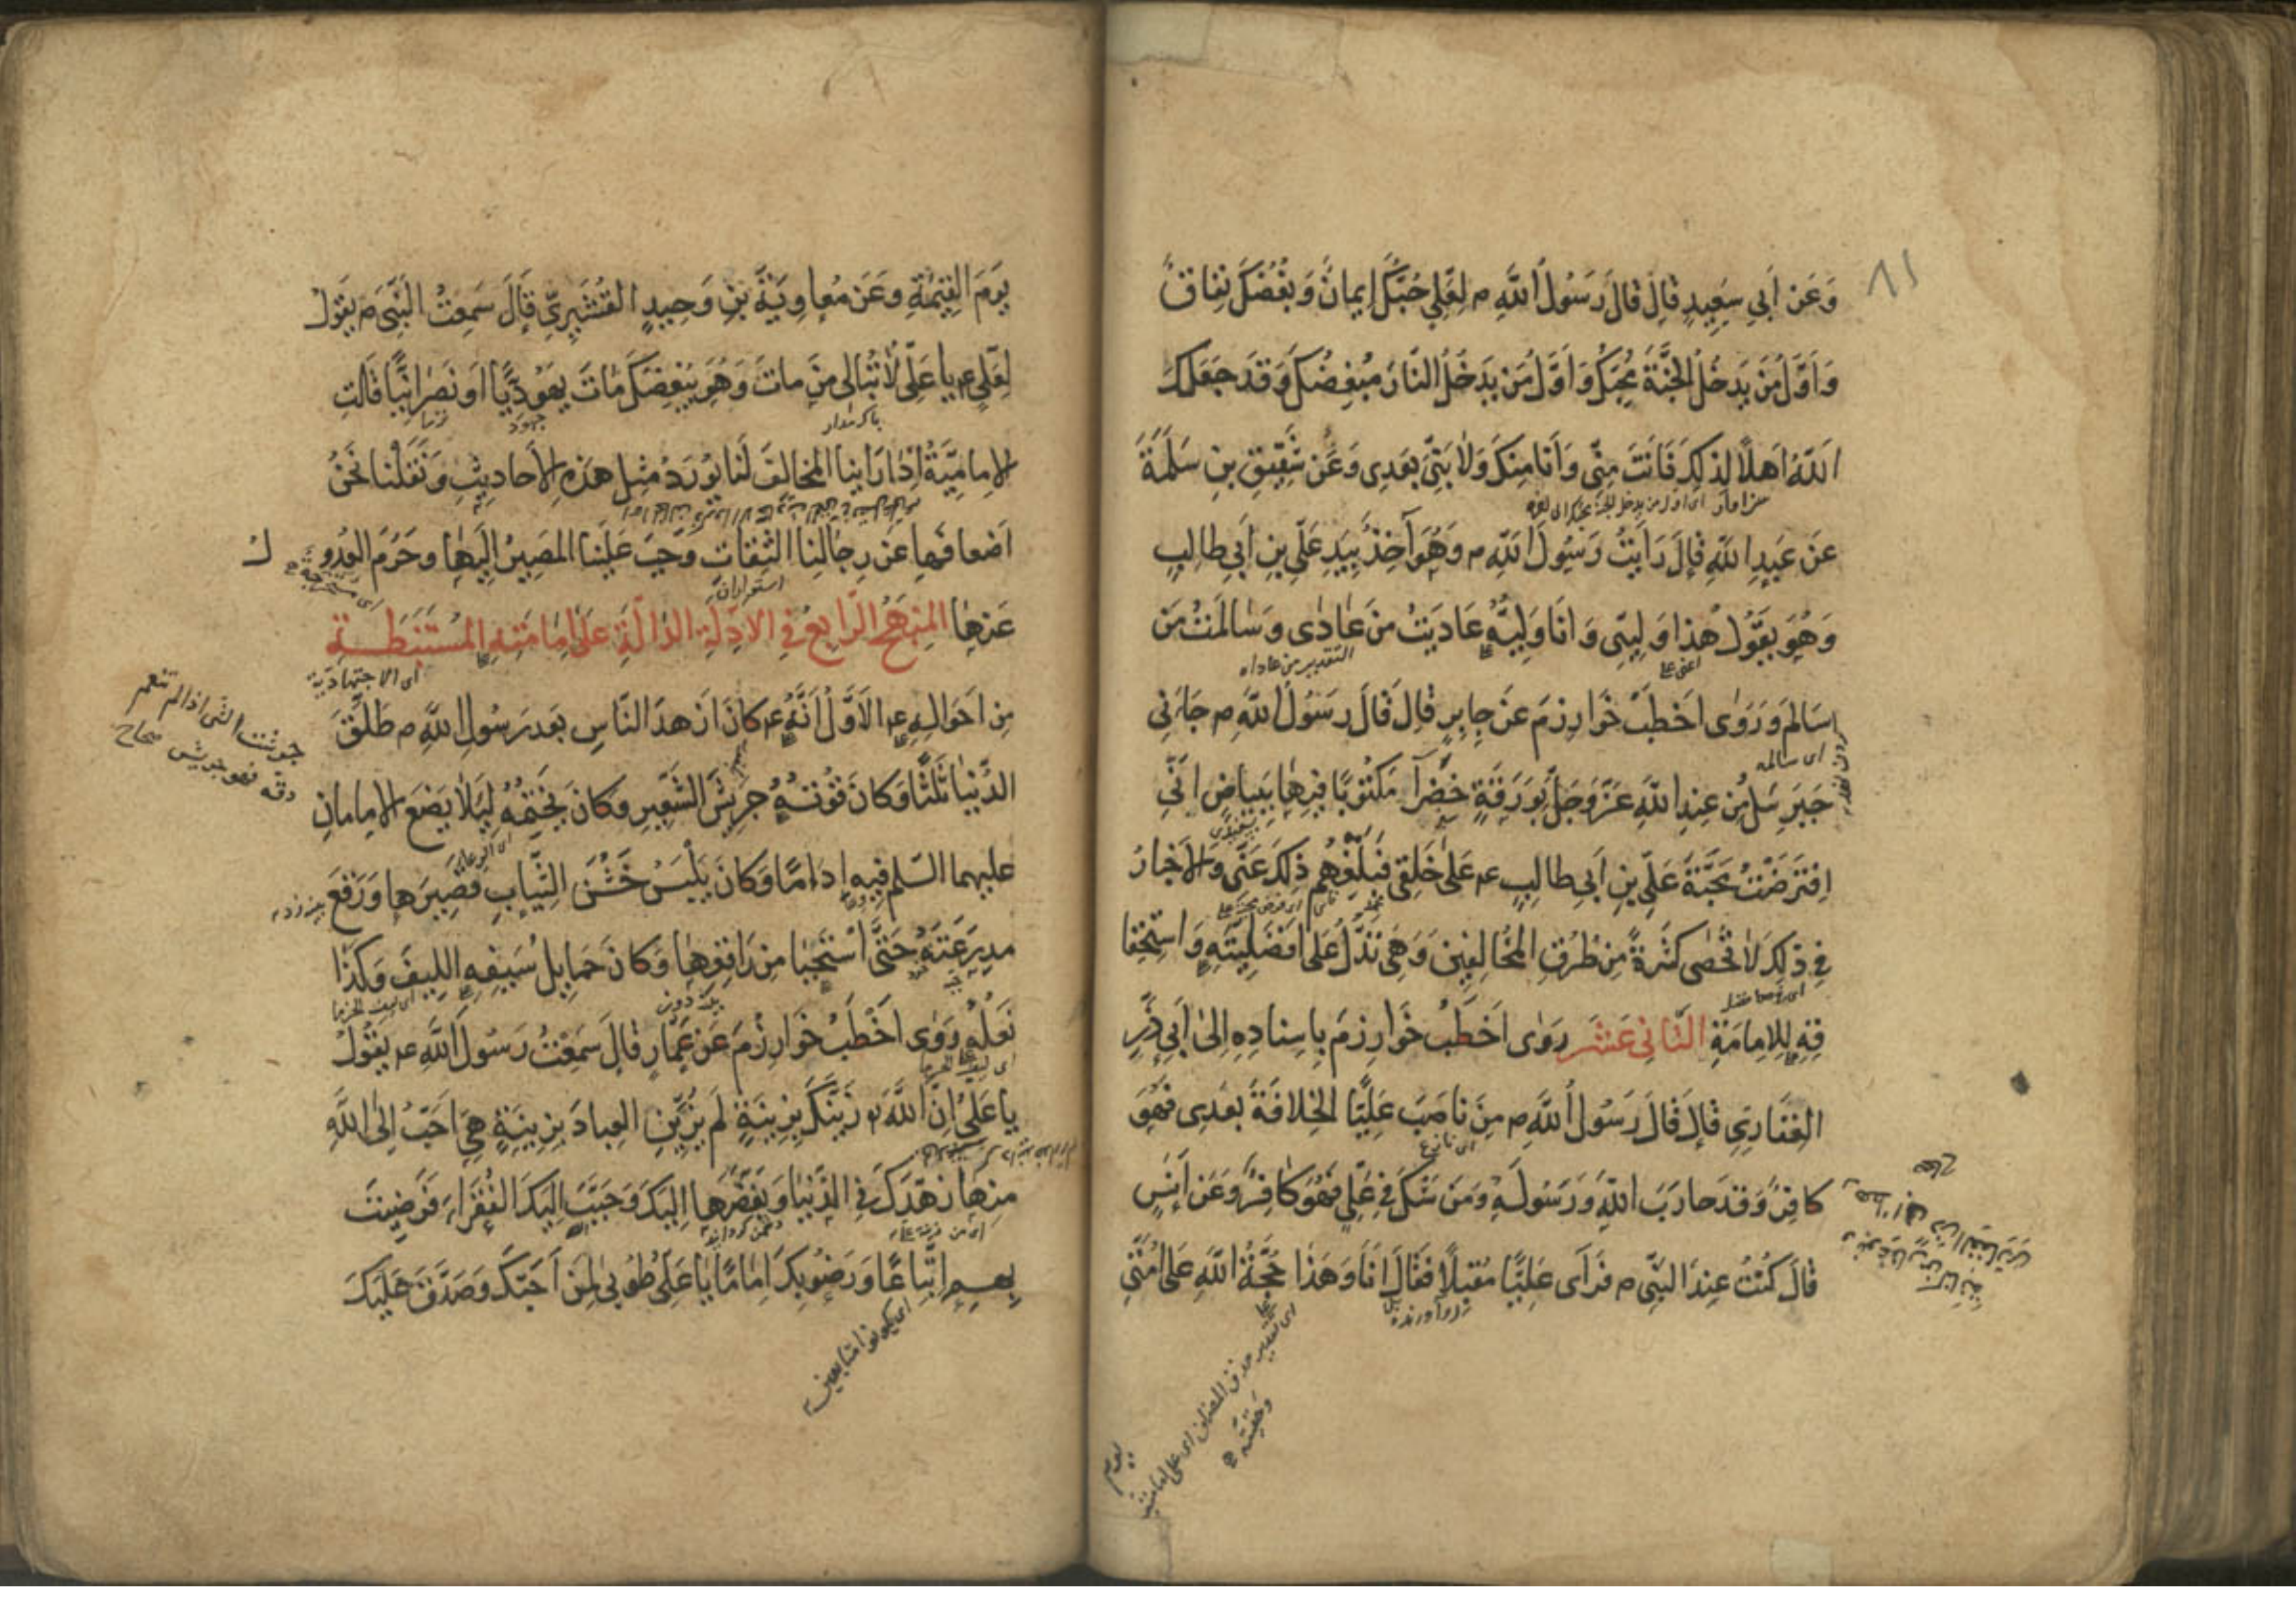 ٨١
وَعَن اَبي سَعِيدٍ قالَ قالَ رَسُولُ اللّهِ م لِعَلِيٍ حُبُّكَ إيمانٌ وَبُغْضُكَ نِفاقٌ
وَاَوَّلُ مَن يَدخُلُ الجَنَّةَ مُحِبُّكَ وَاَوَّلُ مَن يَدخُلُ النّارَ مُبغِضُكَ وَقَد جَعَلَكَ
اللّهُ اَهلًا لِذلِكَ فَاَنتَ مِنّى وَاَنا مِنكَ وَلا نَبِىَّ بَعدِى وَعَن شَقِيقِ بنِ سَلَمَةَ
سزاوار اى اول من يدخل الجنة محبك الى اخره
عَن عَبدِ اللّهِ قالَ رَاَيتُ رَسُولَ اللّهِ م وَهُوَ آخِذٌ بِيَدِ عَلِىِّ بنِ اَبي طالِبٍ
وَهُوَ يَقُولُ هذا وَلِيّى وَانَا وَلِيُّهُ عادَيتُ مَن عادى وَسالَمتُ مَن
اعنى على التقدير من عاداه
سالَمَ وَرَوى اَخطَبُ خَوارِزمَ عَن جابِرٍ قالَ قالَ رَسُولُ اللّهِ م جاءَنى
اى سالمه
جَبرَئيلُ مِن عِندِ اللّهِ عَزَّوَجَلَّ بِوَرَقَةٍ خَضرآءَ مَكتُوبًا فيها بِبَياضٍ اِنّى
بسفيدى
اِفتَرَضتُ مَحَبَّةَ عَلِىِّ بنِ اَبى طالِبٍ عم عَلى خَلقى فَبَلِّغهُم ذلِكَ عَنّى وَالاَخبارُ
فِى ذلِكَ لا تُحصى كَثرَةً مِن طُرُقِ المُخالِفينَ وَهِىَ تَدُلُّ عَلى اَفضَلِيَّتِهِ وَاستِحقا
قِهِ لِلاِمامَةِ الثّانى عَشَر رَوى اَخطَبُ خَوارِزمَ بِاِسنادِهِ اِلى اَبى ذَرٍّ
الغِفارِىِّ قالَ قالَ رَسُولُ اللّهِ م مَن ناصَبَ عَلِيًّا الخِلافَةَ بَعدِى فَهُوَ
اى نازع
كافِرٌ وَقَد حارَبَ اللّهَ وَرَسُولَهُ وَمَن شَكَّ فِى عَلِىٍّ فَهُوَ كافِرٌ وَعَن اَنَسٍ
قالَ كُنتُ عِندَ النَّبِىِّ م فَرَآى عَلِيًّا مُقبِلًا فَقالَ اَنَا وَهذا حُجَّةُ اللّهِ عَلى اُمَّتى
روآورنده
اى بتقدير حذف المضاف اى على امامته
وحقيته
يوم
يَومَ القِيمَةِ وَعَن مُعاوِيَةَ بنِ وَحِيدٍ القُشَيرِىِّ قالَ سَمِعتُ النَّبِىَّ م يَقُولُ
لِعَلِىٍ عم يا عَلِىُّ لا تُبالى مَن ماتَ وَهُوَ يُبغِضُكَ ماتَ يَهُودِيًّا اَو نَصرانِيًّا قالَتِ
باك مدار جهود ترسا
الاِمامِيَّةُ اِذا رَاَينا المُخالِفَ لَنا يُورِدُ مِثلَ هذِهِ الاَحاديثِ وَنَقَلنا نَحنُ
اَضعافَها عَن رِجالِنا الثِّقاتِ وَجَبَ عَلَينا المَصيرُ اِلَيها وَحَرُمَ العُدُو لُ
عَنها المَنهَجُ الرّابِعُ فِى الاَدِلَّةِ الدّالَّةِ عَلى اِمامَتِهِ المُستَنبَطَةِ
اى الاجتهادية
مِن اَحوالِهِ عم الاَوَّلُ اَنَّهُ عم كانَ اَزهَدَ النّاسِ بَعدَ رَسُولِ اللّهِ م طَلَّقَ
جرشت الشى اذا لم تنعم
دقه فهو جريش صحاح
الدُّنيا ثَلثًا وَكانَ قُوتُهُ جَريشَ الشَّعيرِ وَكانَ يَختِمُهُ لِئَلا يَضَعَ الاِمامانِ
عليهما السّلم فيهِ اِدامًا وَكانَ يَلبَسُ خَشِنَ الثِّيابِ قَصيرَها وَرَقَعَ
مِدرَعَتَهُ حَتّى استَحيا مِن راقِعِها وَكانَ حَمايِلُ سَيفِهِ اللِيفَ وَكَذا
نَعلُهُ رَوى اَخطَبُ خَوارِزمَ عَن عَمّارٍ قالَ سَمِعتُ رَسُولَ اللّهِ عم يَقُولُ
يا عَلِىُّ اِنَّ اللّهَ زَيَّنَكَ بِزينَةٍ لَم يُزَيِّنِ العِبادَ بِزينَةٍ هِىَ اَحَبُّ اِلَى اللّهِ
مِنها زَهَّدَكَ فِى الدُّنيا وَبَغَّضَها اِلَيكَ وَحَبَّبَ اِلَيكَ الفُقَراءَ فَرَضيتَ
بِهِم اِتّباعًا وَرَضُوا بِكَ اِمامًا يا عَلِىُّ طُوبى لِمَن اَحَبَّكَ وَصَدَّقَ عَلَيكَ
اى يكونوا متابعين